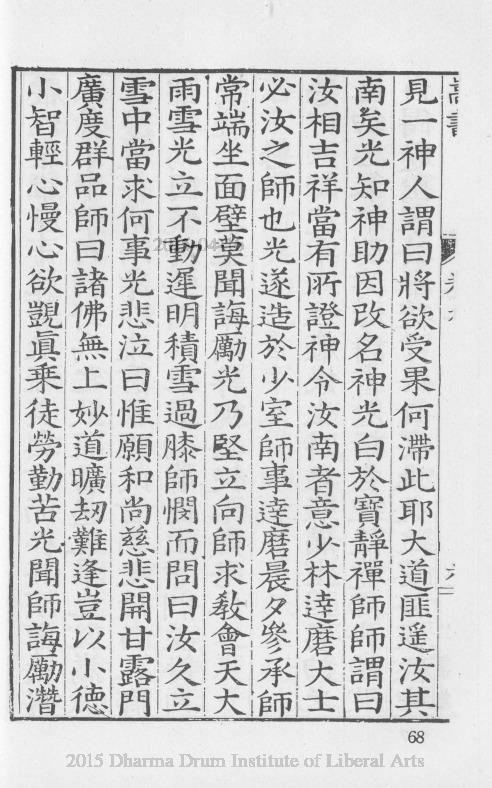 見一神人謂曰將欲受果何滯此耶大道匪遙汝其
南矣光知神助因改名神光白於寶靜禪師師謂曰
汝相吉祥當有所證神令汝南者意少林達磨大士
必汝之師也光遂造於少室師事達磨晨夕參承師
常端坐面壁莫聞誨勵光乃堅立向師求教會天大
雨雪光立不動遲明積雪過膝師憫而問曰汝久立
雪中當求何事光悲泣曰惟願和尚慈悲開甘露門
廣度群品師曰諸佛無上妙道曠劫難逢豈以小德
小智輕心慢心欲覬眞乗徒勞勤苦光聞師誨勵潛
68
2015 Dharma Drum Institute of Liberal Arts